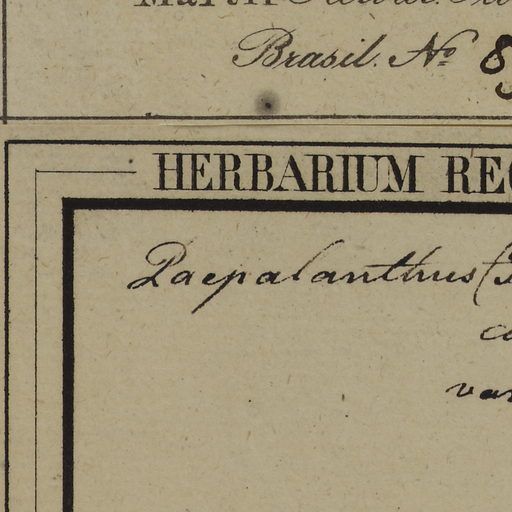 Brasil. Nº 8
HERBARIUM REG
Paepalanthus (
var